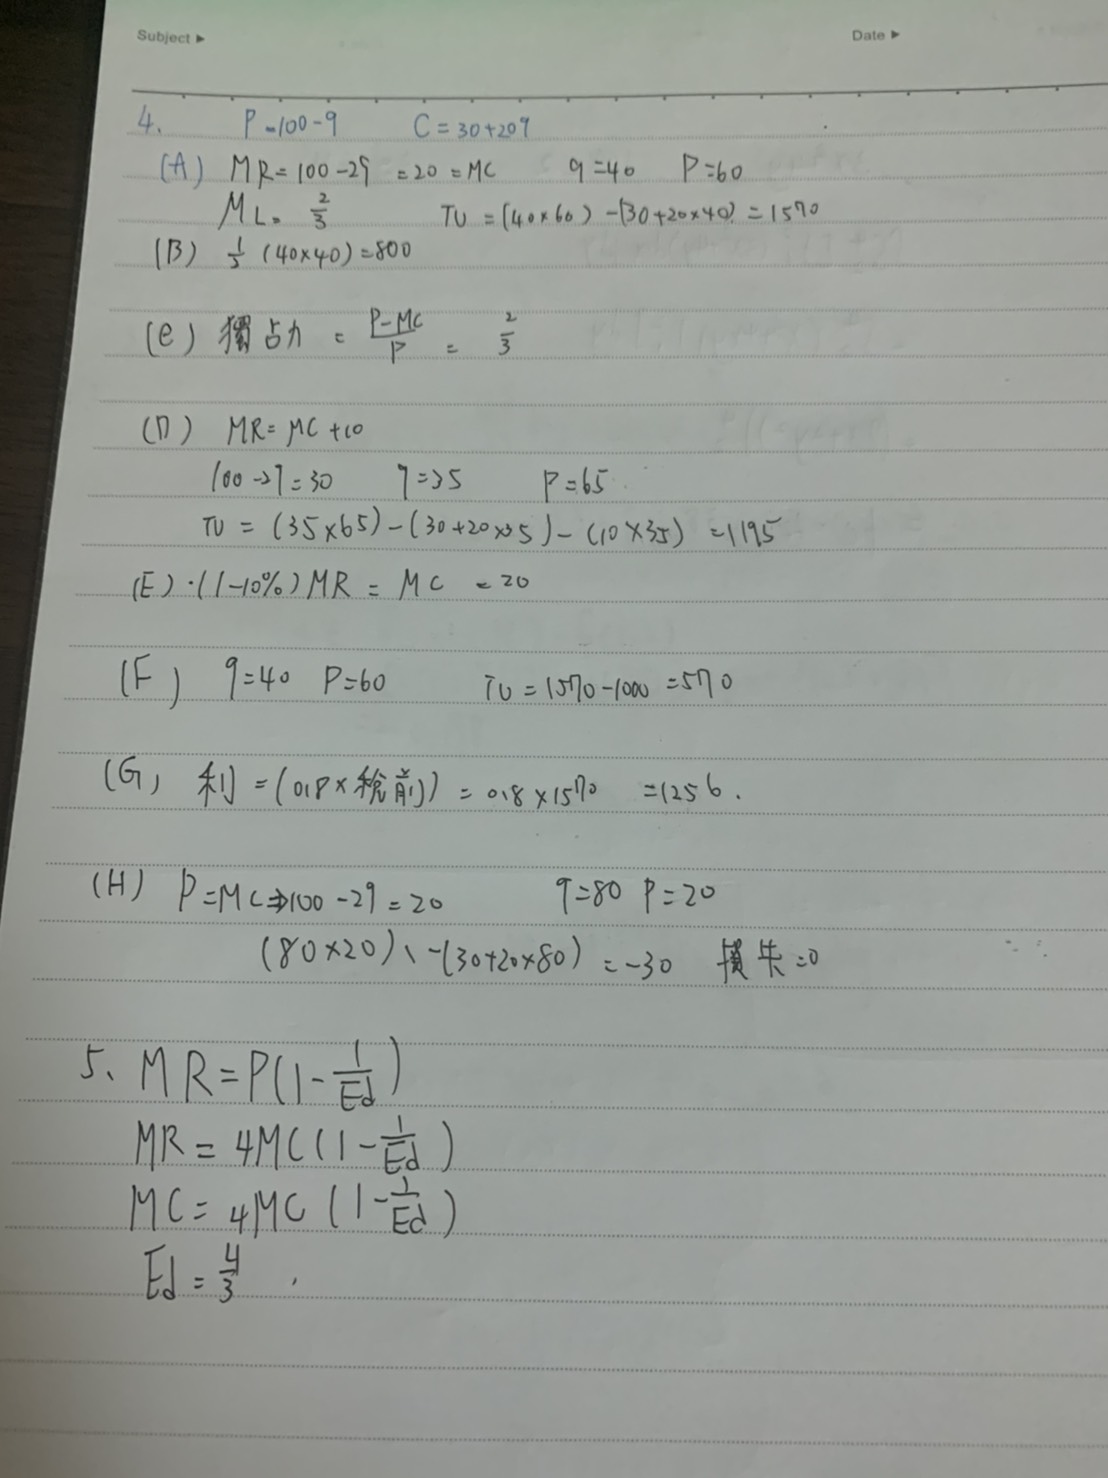 Subject ▶ Date ▶
4. P=100-q C=30+20q
(A) MR=100-2q =20=MC q=40 P=60
ML= 2/3 TU=(40×60)-(30+20×40)=1570
(B) (40×40)=800
(C) 獨占力 = P-MC/P = 2/3
(D) MR=MC+10
100-2q=30 q=35 P=65
TU=(35×65)-(30+20×35)-(10×35)=1195
(E)·(1-10%)MR=MC=20
(F) q=40 P=60 TU=1570-1000=570
(G) 利=(0.8×稅前)=0.8×1570 =1256.
(H) P=MC⇒100-2q=20 q=80 P=20
(80×20)、-(30+20×80)=-30 損失=0
5、MR=P(1-1/Ed)
MR=4MC(1-1/Ed)
MC=4MC(1-1/Ed)
Ed=4/3